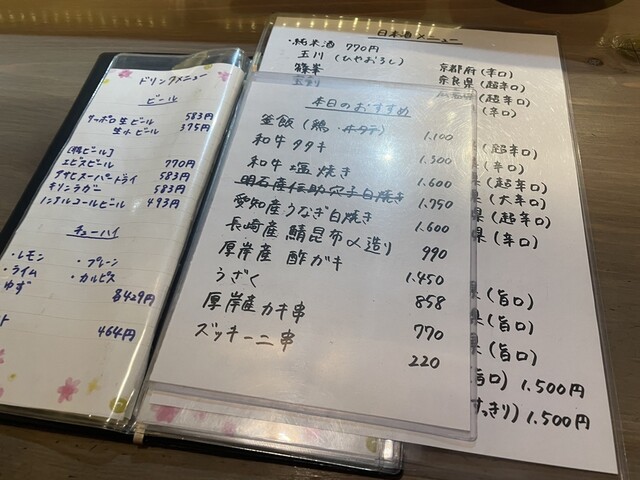 ドリンクメニュー
ビール
サッポロ生ビール 583円
生小ビール 375円
エビスビール 770円
アサヒスーパードライ 583円
キリンラガー 583円
ノンアルコールビール 493円
チューハイ
・レモン ・プレーン
・ライム ・カルピス
ゆず
各429円
464円
日本酒メニュー
・純米酒 770円
玉川(ひやおろし) 京都府(辛口)
篠峯 奈良県(超辛口)
(超辛口)
(辛口)
本日のおすすめ
釜飯(鶏・
1,100
和牛タタキ
1,300
和牛塩焼き
1,600
明石産伝助穴子白焼き
1,750
愛知産うなぎ白焼き
1,600
長崎産鯖昆布〆造り
990
厚岸産酢ガキ
1,450
うざく
858
厚岸産カキ串
770
ズッキーニ串
220
(超辛口)
県(辛口)
県(超辛口)
県(大辛口)
県(超辛口)
県(辛口)
県(旨口)
県(旨口)
県(旨口)
旨口) 1,500円
すっきり) 1,500円